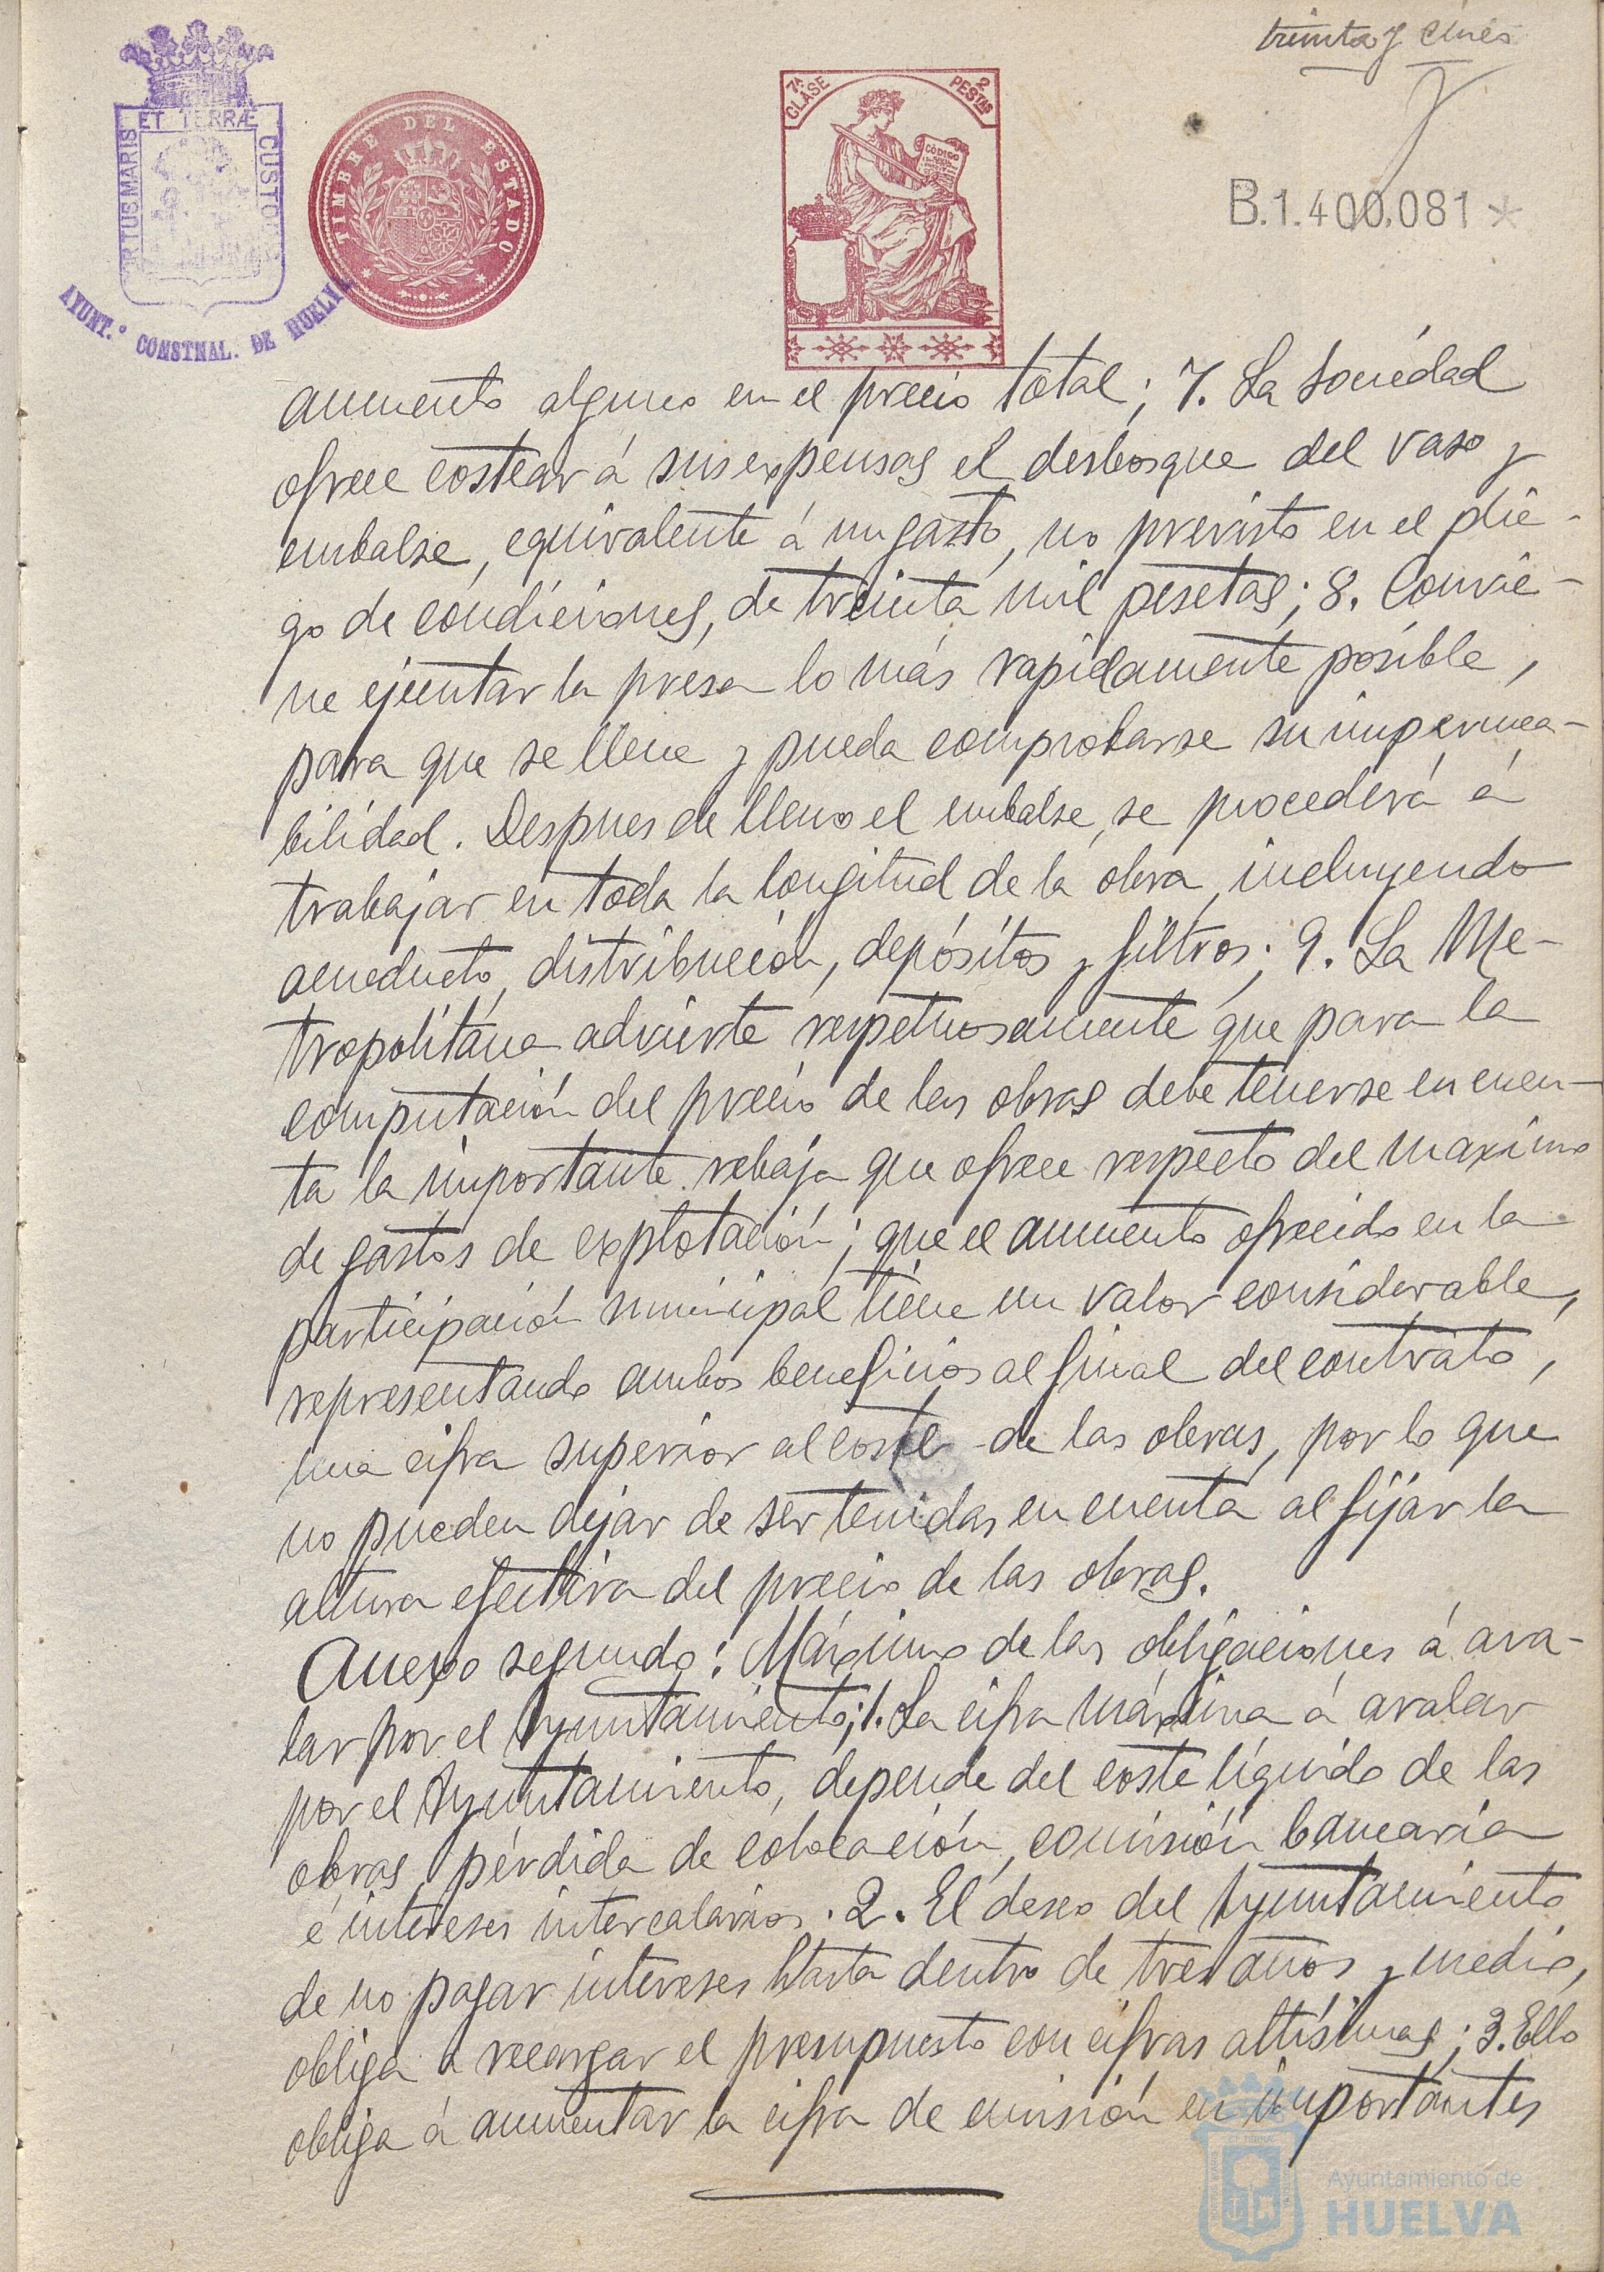 treinta y cinco
PORTUS MARIS ET TERRÆ CUSTO
AYUNT.º CONSTNAL. DE HUELVA
TIMBRE DEL ESTADO
7ª CLASE
2 PESTAS
CÓDIGO
B.1.400.081*
aumento alguno en el precio total; 7. La Sociedad
ofrece costear á sus expensas el desbosque del vaso y
embalse, equivalente á un gasto, no previsto en el plie-
go de condiciones, de treinta mil pesetas; 8. Convie-
ne ejecutar la presa lo más rapidamente posible,
para que se llene y pueda comprobarse su impermea-
bilidad. Despues de lleno el embalse, se procederá á
trabajar en toda la longitud de la obra, incluyendo
acueducto, distribución, depósitos y filtros; 9. La Me-
tropolitana advierte respetuosamente que para la
computación del precio de las obras debe tenerse en cuen-
ta la importante rebaja que ofrece respecto del maximo
de gastos de explotación; que el aumento ofrecido en la
participación municipal tiene un valor considerable,
representando ambos beneficios al final del contrato,
una cifra superior al coste de las obras, por lo que
no pueden dejar de ser tenidas en cuenta al fijar la
altura efectiva del precio de las obras.
Anexo segundo: Máximo de las obligaciones á ava-
lar por el Ayuntamiento; 1. La cifra máxima á avalar
por el Ayuntamiento, depende del coste líquido de las
obras, pérdida de colocación, comisión bancaria
é intereses intercalarios. 2. El deseo del Ayuntamiento
de no pagar intereses hasta dentro de tres años y medio,
obliga a recargar el presupuesto con cifras altísimas; 3. Ello
obliga á aumentar la cifra de emisión en importantes
Ayuntamiento de
HUELVA